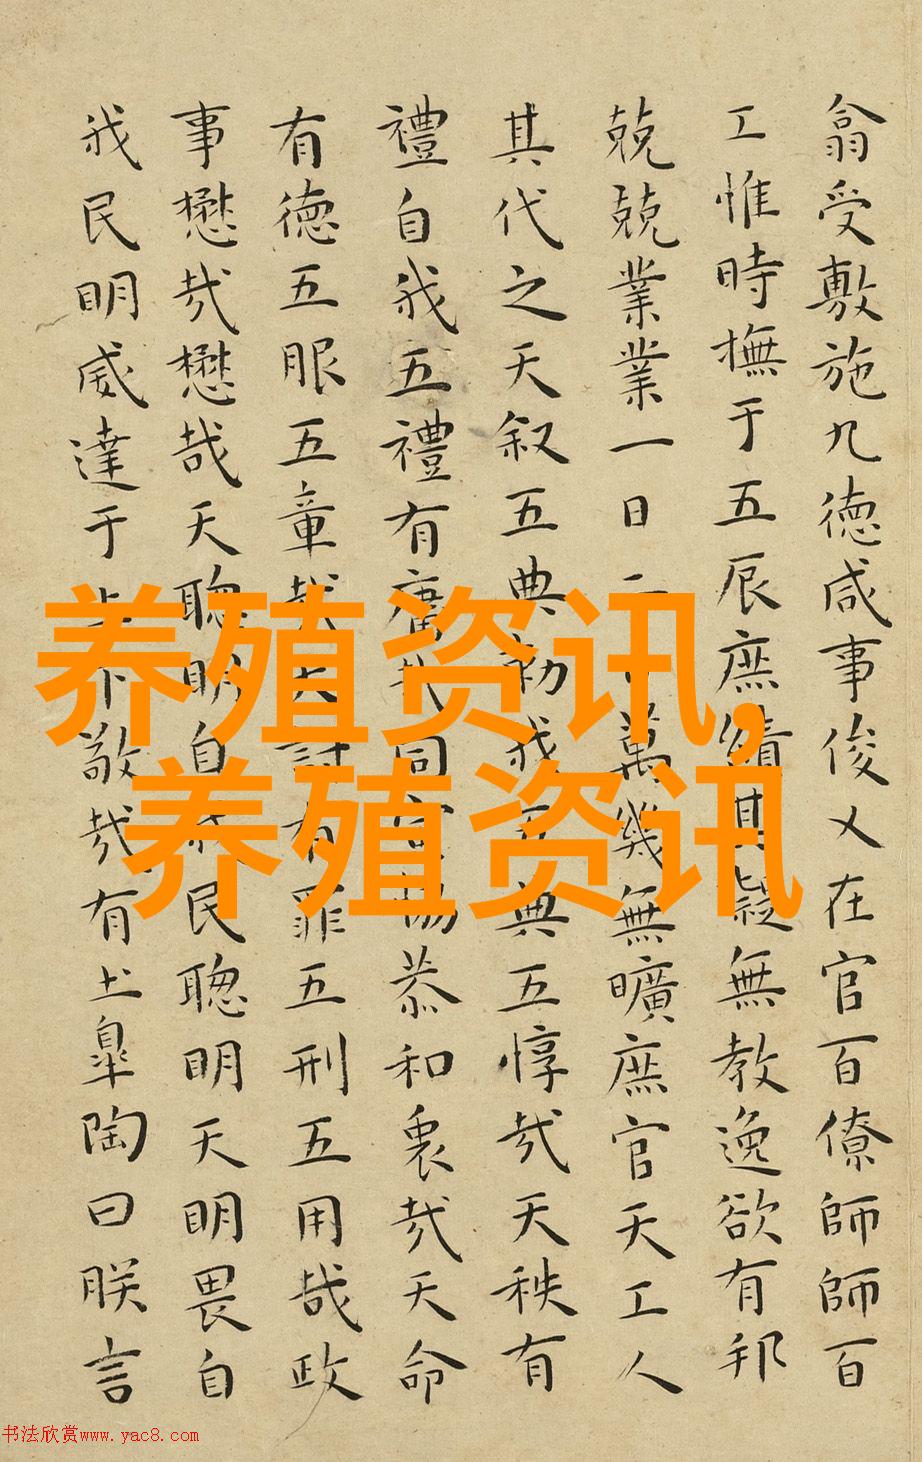 翕受敷施九德咸事俊乂在官百僚師師百
工惟時撫于五辰庶績其凝無教逸欲有邦
兢兢業業一日二日萬幾無曠庶官天工人
其代之天叙五典勑我五典五惇哉天秩有
禮自我五禮有庸哉同寅協恭和衷哉天命
有德五服五章哉天討有罪五刑五用哉政
事懋哉懋哉天聰明自我民聰明天明畏自
我民明威達于上下敬哉有土皋陶曰朕言
养殖资讯,
养殖资讯
书法欣赏www.yac8.com